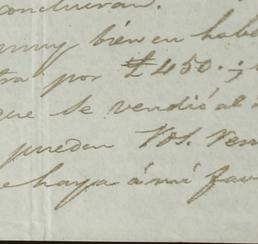 concluirán.
muy bien en habe
tra por £450.;
que se vendió al
pueden Vds. ven
haya á mi fav